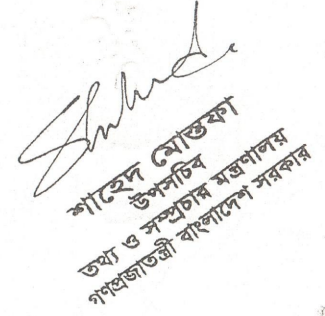 শাহেদ মোস্তফা
উপসচিব
তথ্য ও সম্প্রচার মন্ত্রণালয়
গণপ্রজাতন্ত্রী বাংলাদেশ সরকার